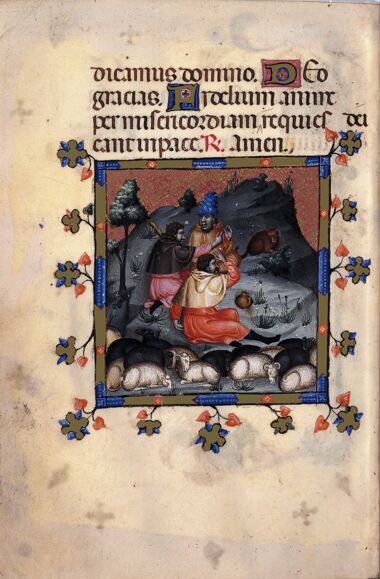 dicamus domino. Deo
gracias. Fidelium anime
per misericordiam dei
requiescant in pace. R. Amen.